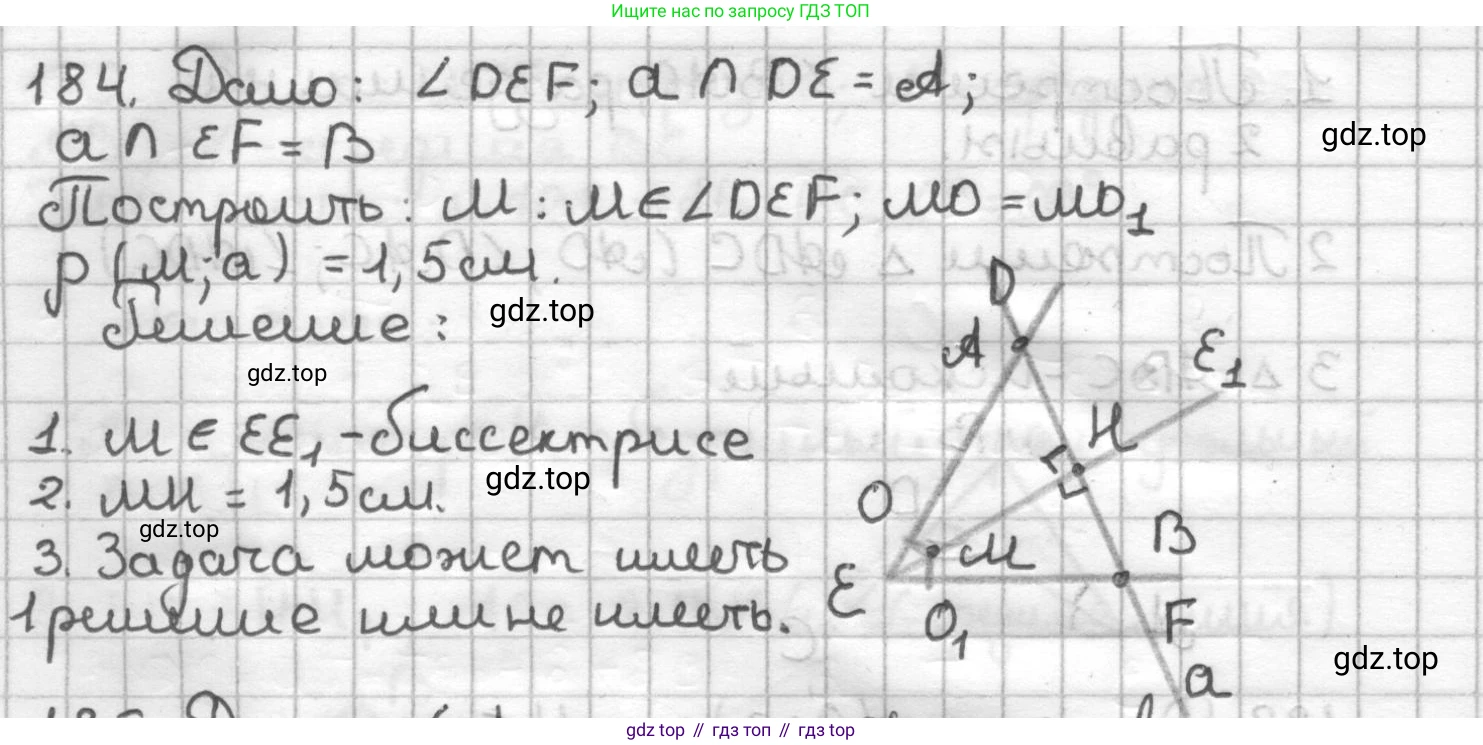 Ищите нас по запросу ГДЗ ТОП
184. Дано: ∠DEF; a ∩ DE = A;
a ∩ EF = B
gdz.top
Построить: M : M ∈ ∠DEF; MO = MO₁
ρ (M; a) = 1,5 см.
Решение:
gdz.top
gdz.top
1. M ∈ EE₁ - биссектрисе
gdz.top
2. MH = 1,5 см.
gdz.top
3. Задача может иметь
1 решение или не иметь.
D
A
E₁
H
O
M
B
E
O₁
F
a
gdz.top
gdz.top // гдз топ // gdz.top